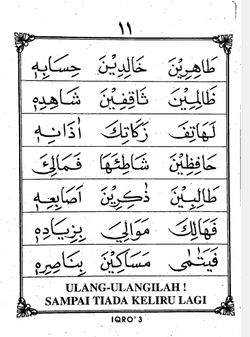 ١١
طَاهِرِيْنَ خَالِدِيْنَ حِسَابِهٖ
ظَالِمِيْنَ ثَاقِفِيْنَ شَاهِدِهٖ
لَهَاتِفَ زَكَاتِكَ اَذَانِهٖ
حَافِظِيْنَ شَاطِئِهَا فَمَالِئَ
طَالِبِيْنَ ذٰكِرِيْنَ اَصَابِعِهٖ
فَهَالِكَ مَوَالِيَ بِزِيَادِهٖ
فَيَتٰمٰى مَسَاكِيْنَ بِنَاصِرِهٖ
ULANG-ULANGILAH !
SAMPAI TIADA KELIRU LAGI
IQRO' 3